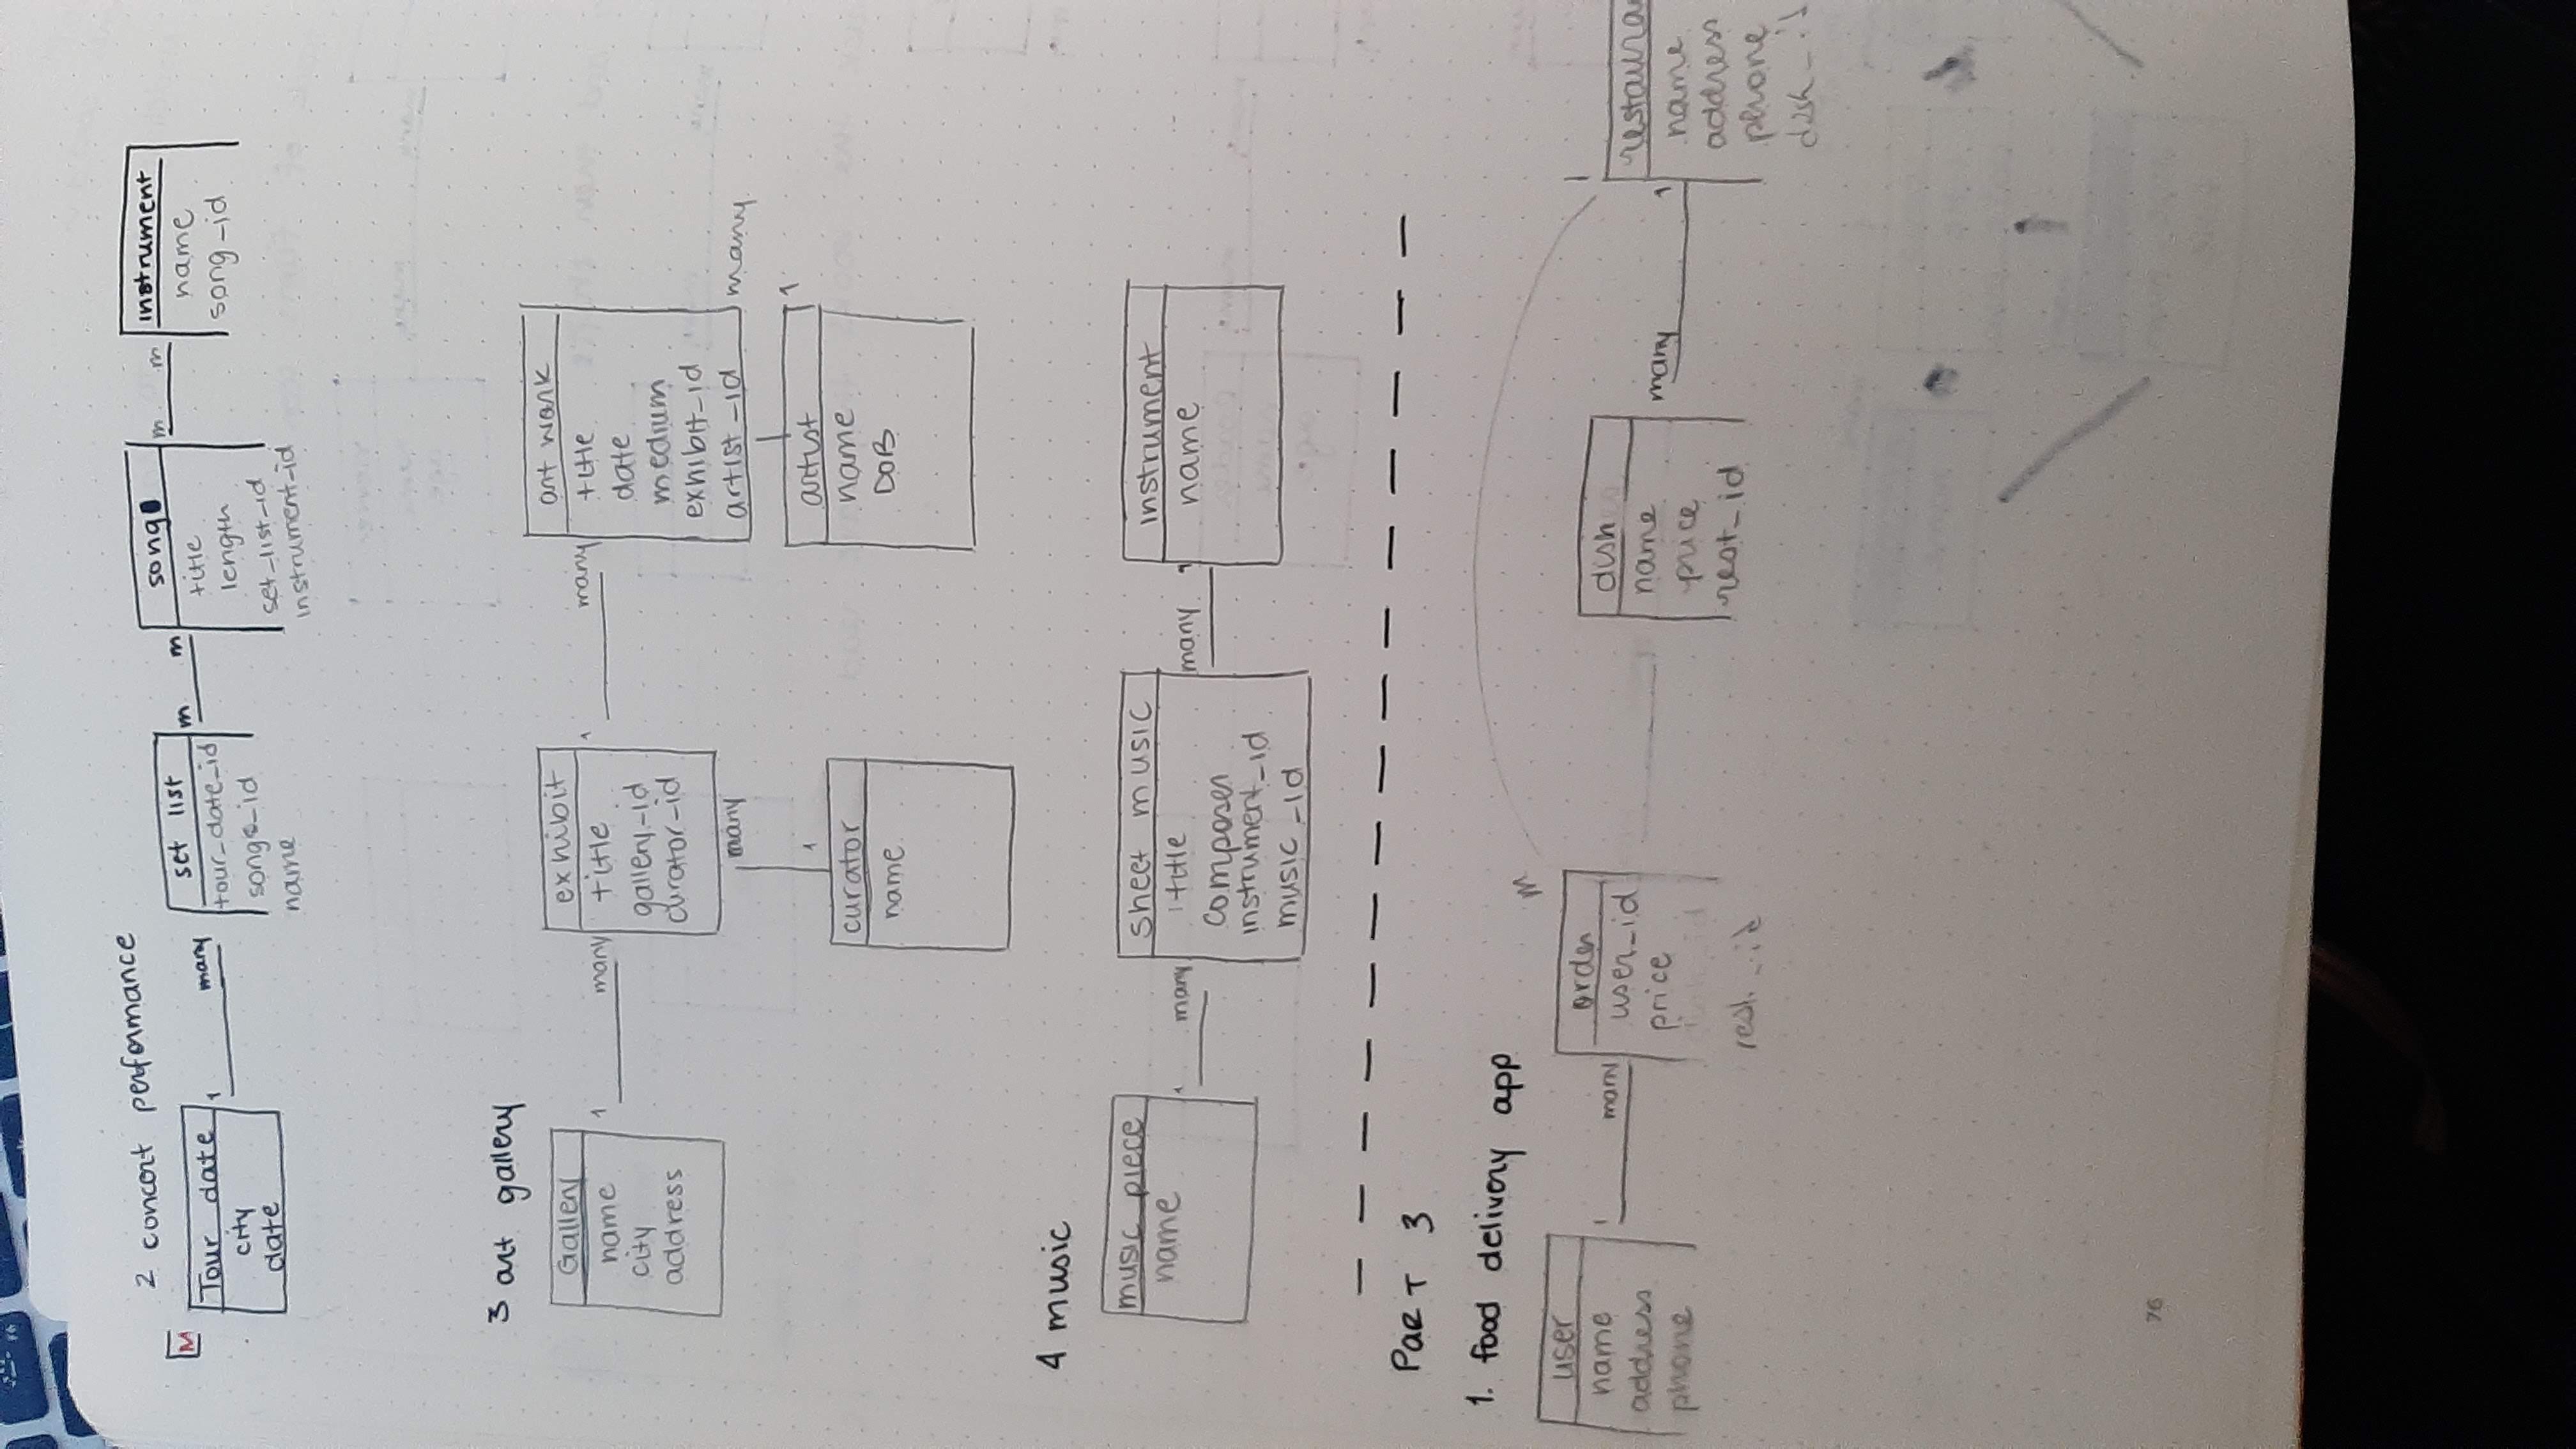 2 concert performance
M
Tour date
city
date
1
many
set list
tour_date_id
songs_id
name
m m
song
title
length
set_list_id
instrument_id
m m
instrument
name
song_id
3 art gallery
Gallery
name
city
address
1
many
exhibit
title
gallery_id
curator_id
1
many
art work
title
date
medium
exhibit_id
artist_id
many
many
1
curator
name
1
artist
name
DOB
4 music
music piece
name
1
many
sheet music
title
composer
instrument_id
music_id
many 1
instrument
name
PART 3
1. food delivery app
user
name
address
phone
1
many
M
order
user_id
price
rest_id
dish
name
price
rest_id
many
1
1
restaura
name
address
phone
dish_id
76